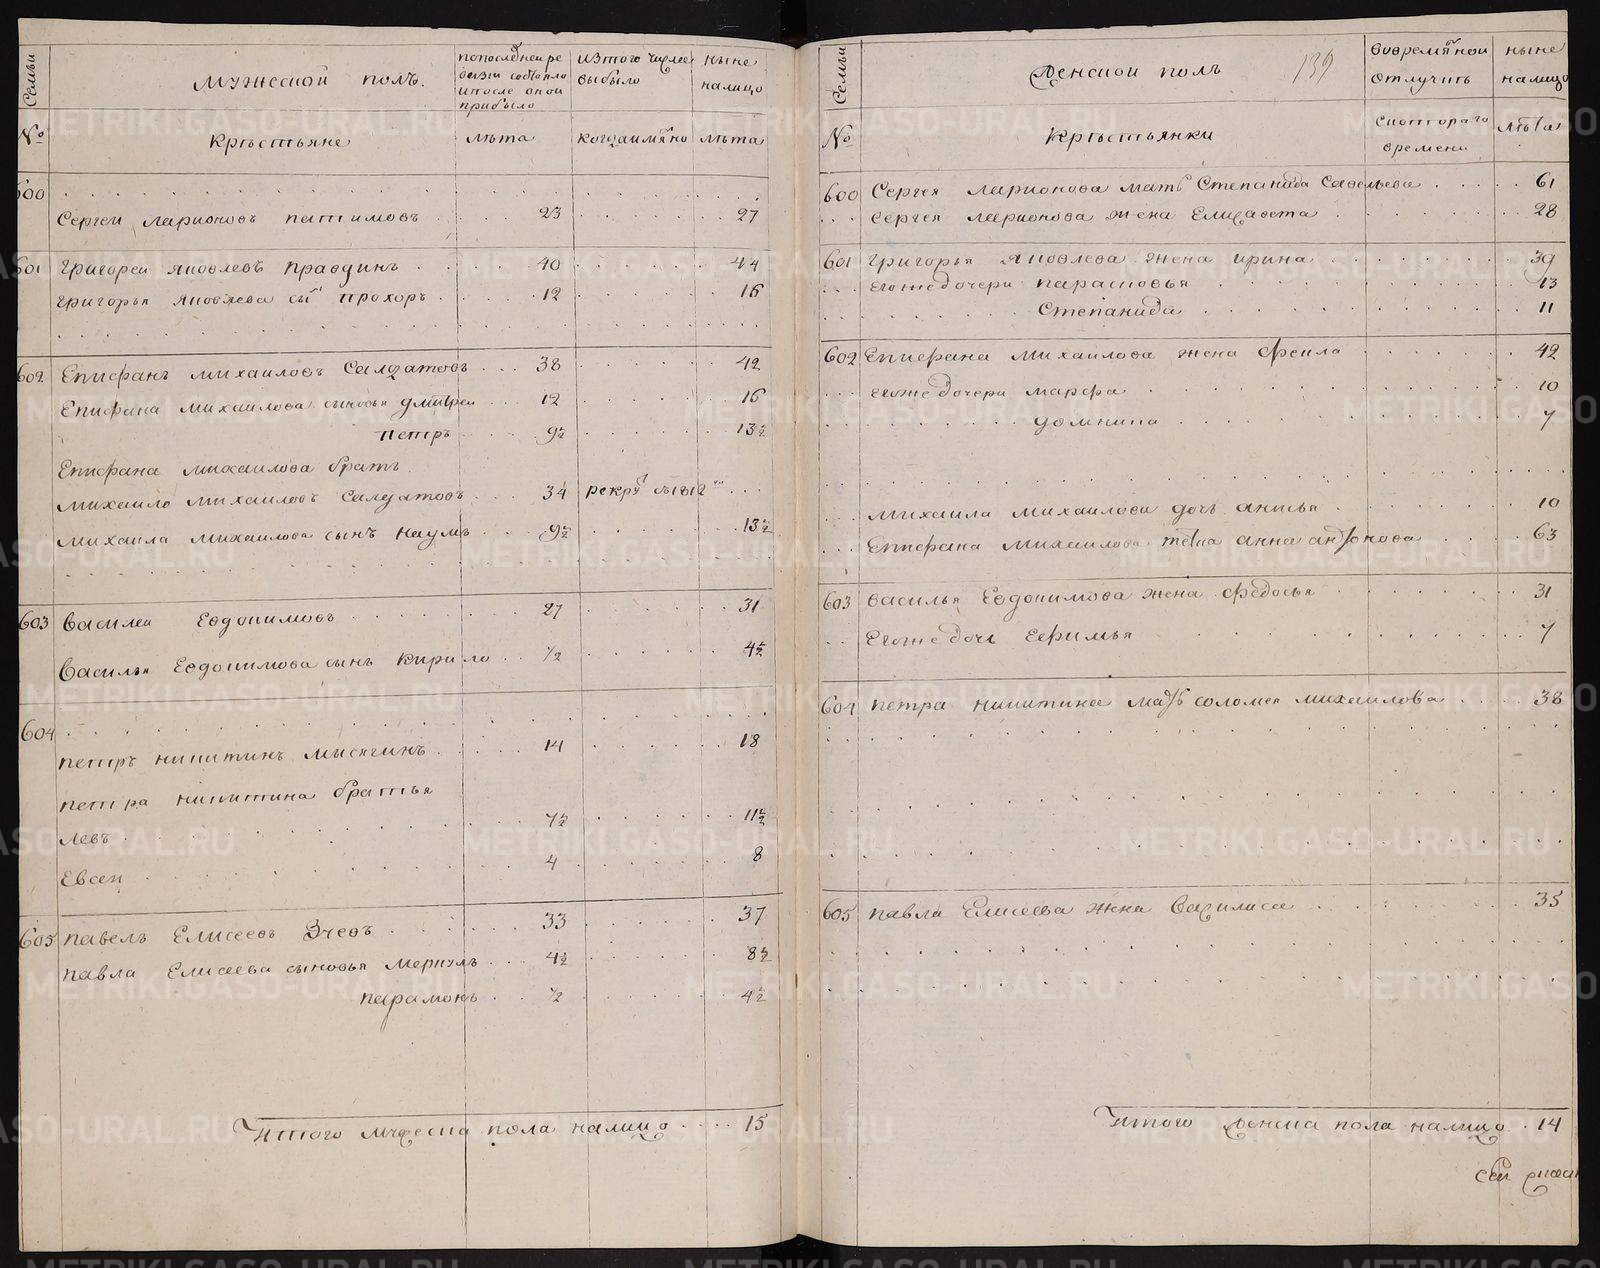 Семьи
мужескои полъ.
попоследнеи ре
визи состояло
ипосле онои
прибыло
изтого числа
выбыло
ныне
налицо
№
Кръстьяне
лѣта
когдаимянно
лѣта
600
Сергеи Ларионовъ 23 27
601 григореи яковлевъ правдинъ 40 44
григорья яковлева сынъ прохоръ 12 16
602 Епифанъ михаиловъ Салдатовъ 38 42
Епифана михаилова сыновья дмитреи 12 16
петръ 9½ 13½
Епифана михаилова братъ
михаило михаиловъ салдатовъ 34 рекрут
михаила михаилова сынъ наумъ 9½ 13½
603 василеи Евдокимовъ 27 31
василья Евдокимова сынъ кирило ½ 4½
604
петръ никитинъ мысягинъ 14 18
петра никитина братья
левъ 7½ 11½
Евсеи 4 8
605 павелъ Елисеевъ Зчевъ 33 37
павла Елисеева сыновья меркулъ 4½ 8½
парамонъ ½ 4½
Итого мужеска пола налицо 15
Семьи
женскои полъ
139
вовремяннои
отлучкѣ
ныне
налицо
№
Кръстьянки
скоттораго
времени
лѣта
600 Сергея ларионова мать Степанида Савельева 61
Сергея ларионова жена Елизавета 28
601 григорья яковлева жена ирина 39
Егожедочери парасковья 13
Степанида 11
602 Епифана михаилова жена фекла 42
Егожедочери марфа 10
домника 7
михаила михаилова дочь анисья 10
Епифана михаилова тетка анна антонова 63
603 василья Евдокимова жена федосья 31
Егоже дочь Ефимья 7
604 петра никитина мать соломея михаилова 38
605 павла Елисеева жена василиса 35
Итого женска пола налицо 14
METRIKI.GASO-URAL.RU